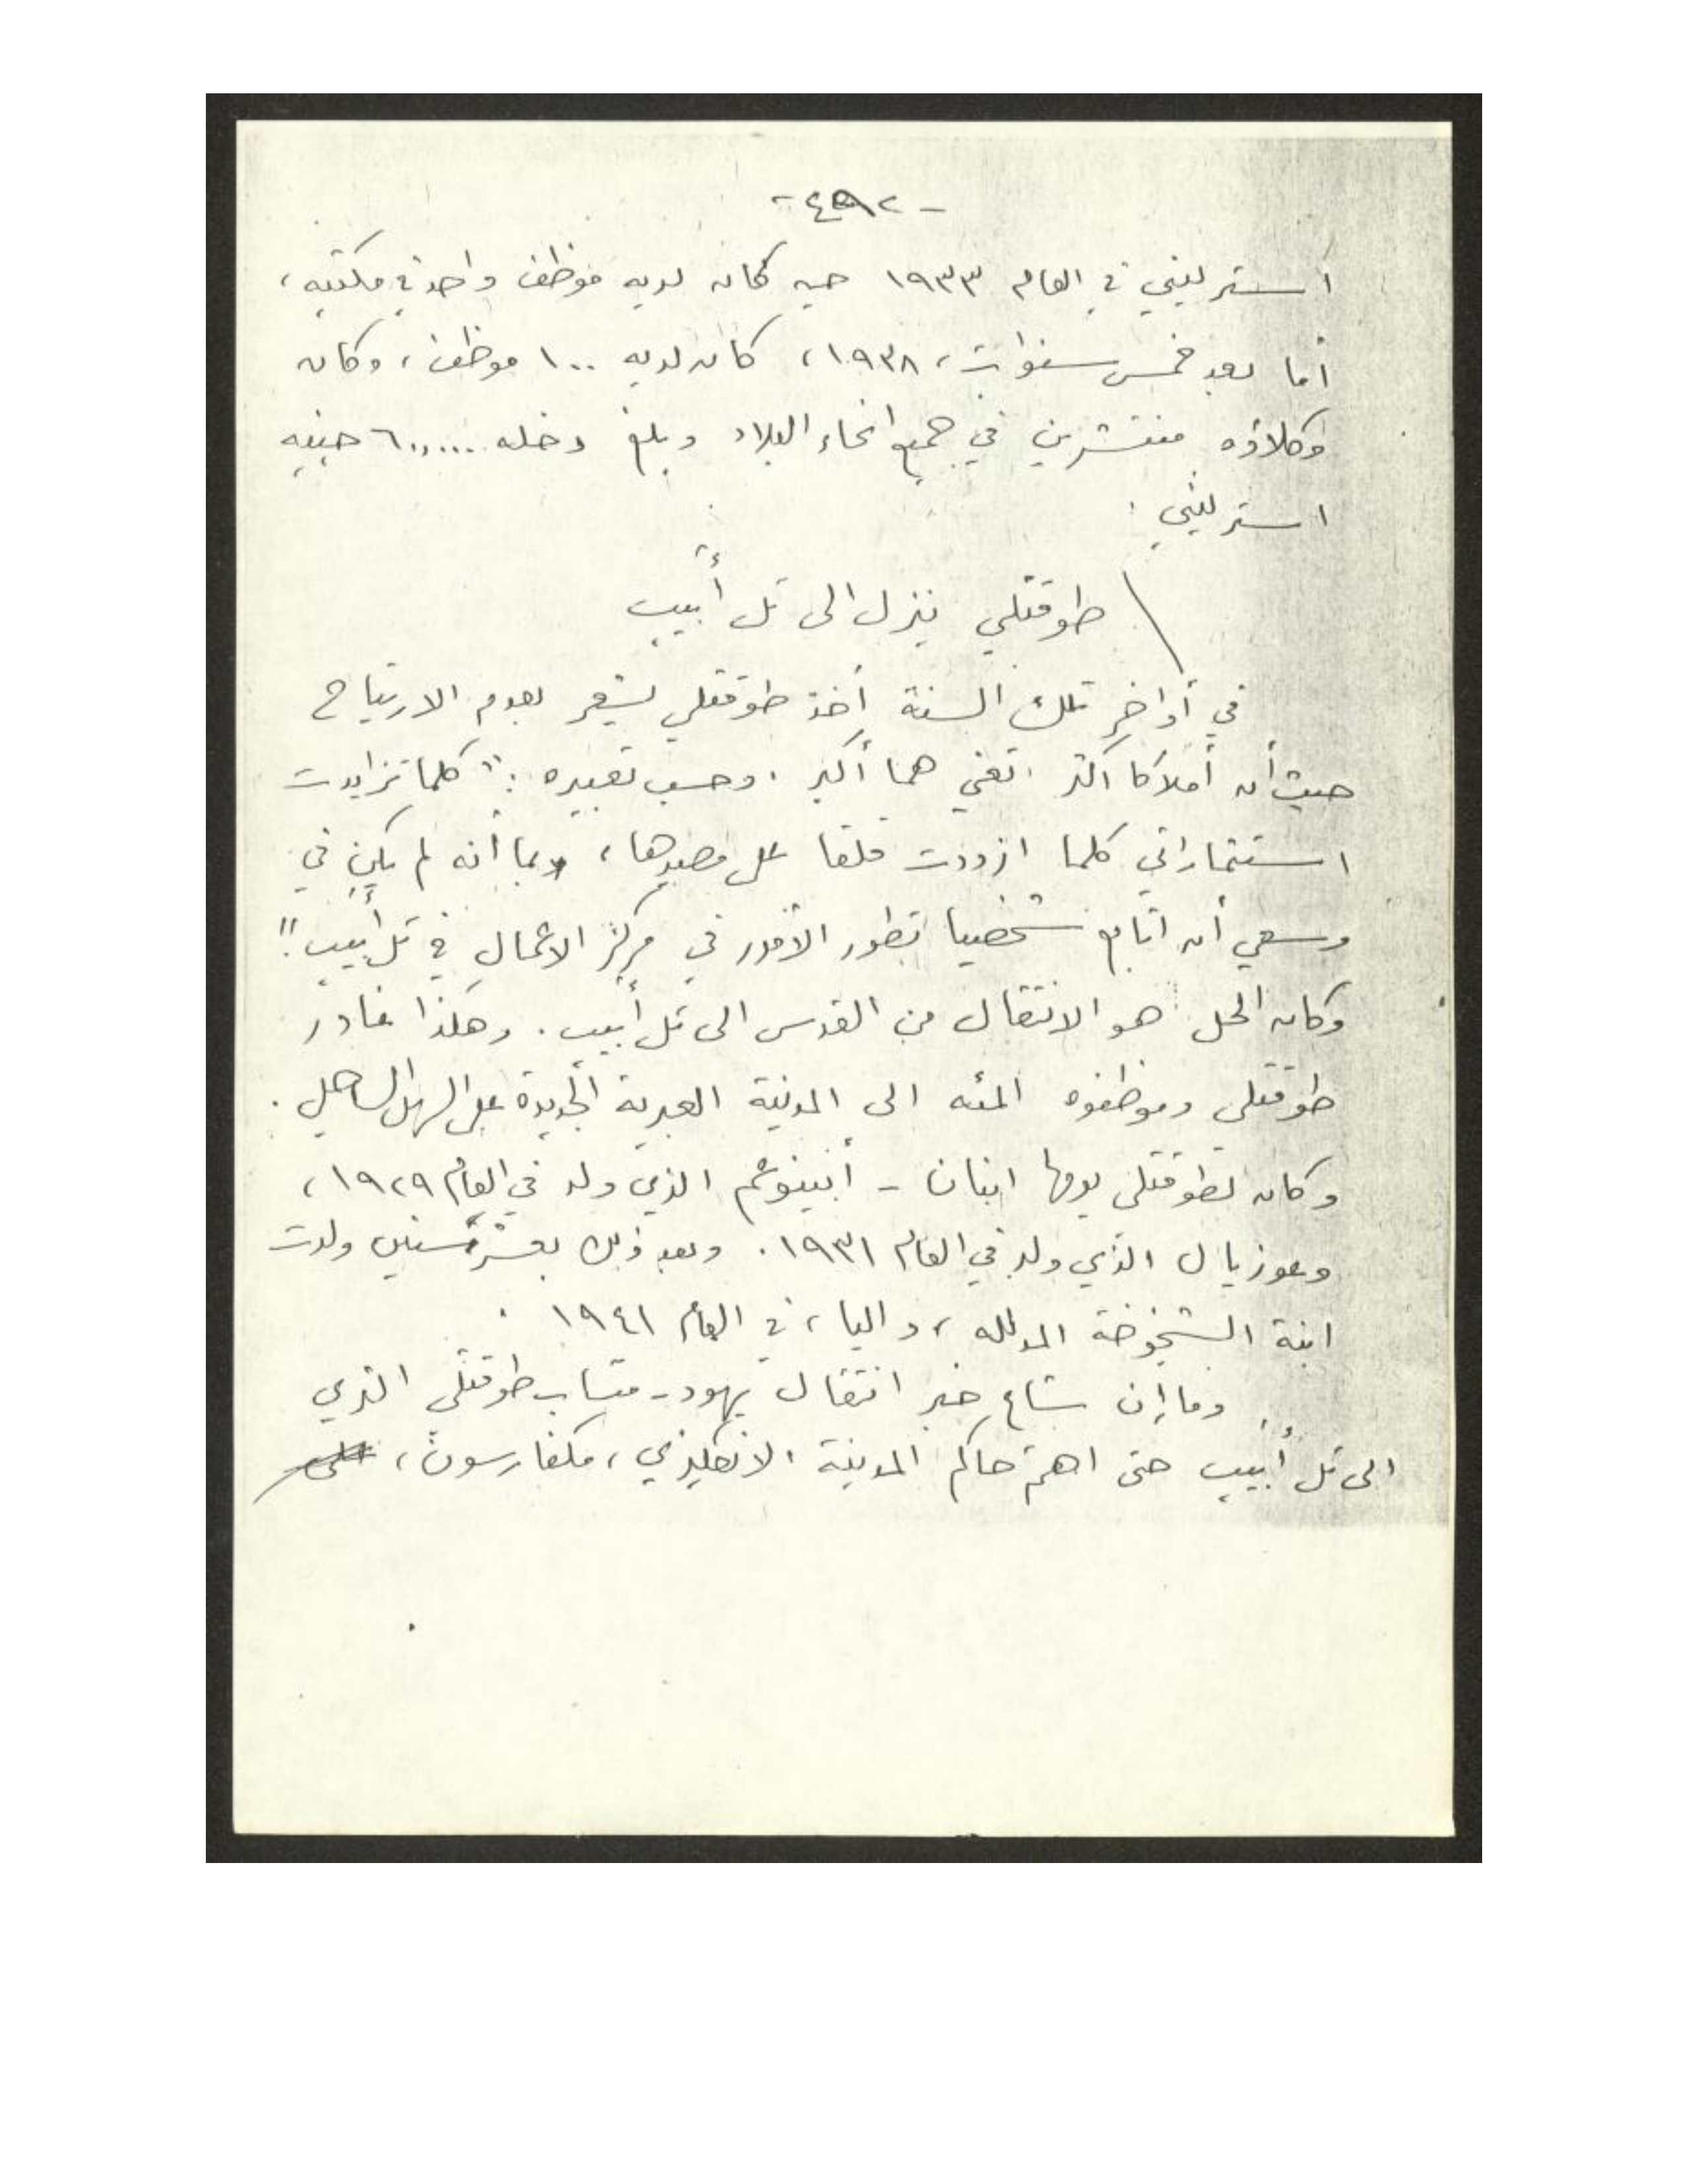 استرليني في العام ١٩٣٣ حين كان لديه موظف واحد في مكتبه،
أما بعد خمس سنوات، ١٩٣٨، كان لديه ١٠٠ موظف، وكان
وكلاؤه منتشرين في جميع انحاء البلاد وبلغ دخله ٦٠،٠٠٠ جنيه
استرليني.
طوقتلي ينزل الى تل أبيب
في أواخر تلك السنة أخذ طوقتلي يشعر بعدم الارتياح
حيث أن أملاكا اكثر تعني هما أكبر. وحسب تعبيره: "كلما تزايدت
استثماراتي كلما ازددت قلقا على مصيرها، وبما أنه لم يكن في
وسعي أن اتابع شخصيا تطور الأمور في مركز الاعمال في تل أبيب".
وكان الحل هو الانتقال من القدس الى تل أبيب. وهكذا غادر
طوقتلي وموظفوه المئه الى المدينة العبرية الجديدة على السهل الساحلي.
وكان لطوقتلي يومها ابنان - أبينوعم الذي ولد في العام ١٩٢٩،
وعوزيال الذي ولد في العام ١٩٣١. وبعد ذلك بعشر سنين ولدت
ابنة الشيخوخة المدلله، داليا، في العام ١٩٤١.
وما إن شاع خبر انتقال يهود - متساب طوقتلي الذي
الى تل أبيب حتى اهتم حاكم المدينة الانكليزي، مكفارسون،